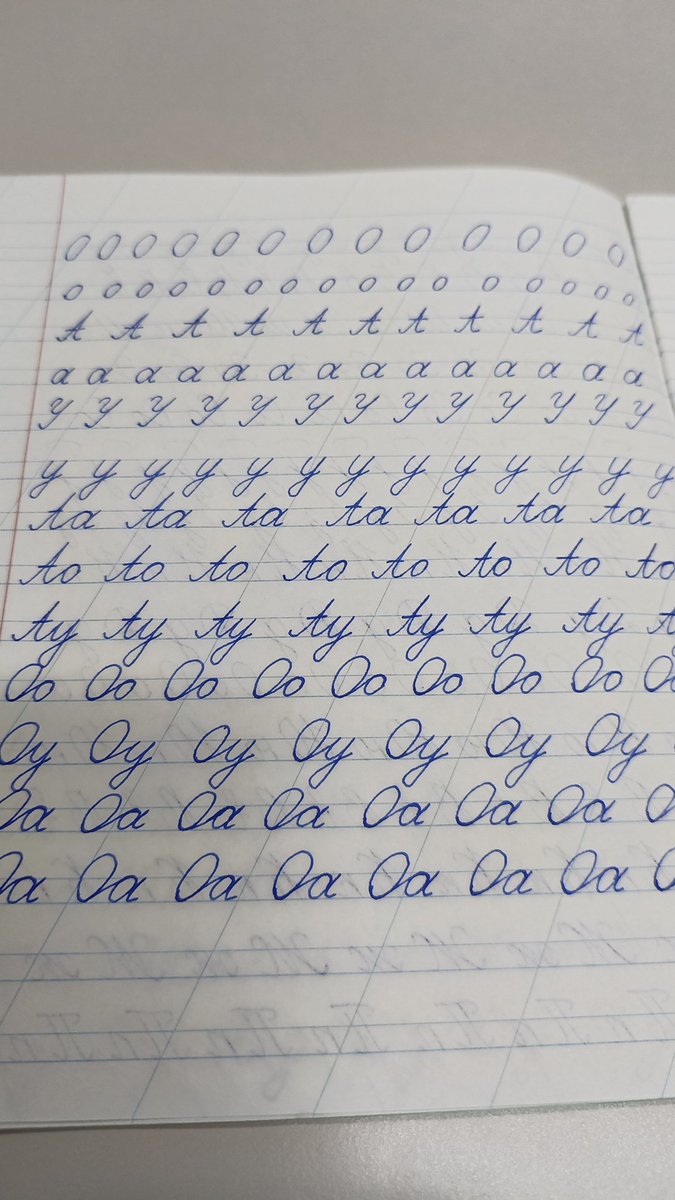 О О О О О О О О О О О О О
о о о о о о о о о о о о о о о о
А А А А А А А А А А А
а а а а а а а а а а а а а а
У У У У У У У У У У У У У
у у у у у у у у у у у у у
Аа Аа Аа Аа Аа Аа Аа
Ао Ао Ао Ао Ао Ао Ао Ао
Ау Ау Ау Ау Ау Ау Ау А
Оо Оо Оо Оо Оо Оо Оо Оо Оо
Оу Оу Оу Оу Оу Оу Оу
Оа Оа Оа Оа Оа Оа Оа О
Оа Оа Оа Оа Оа Оа Оа О